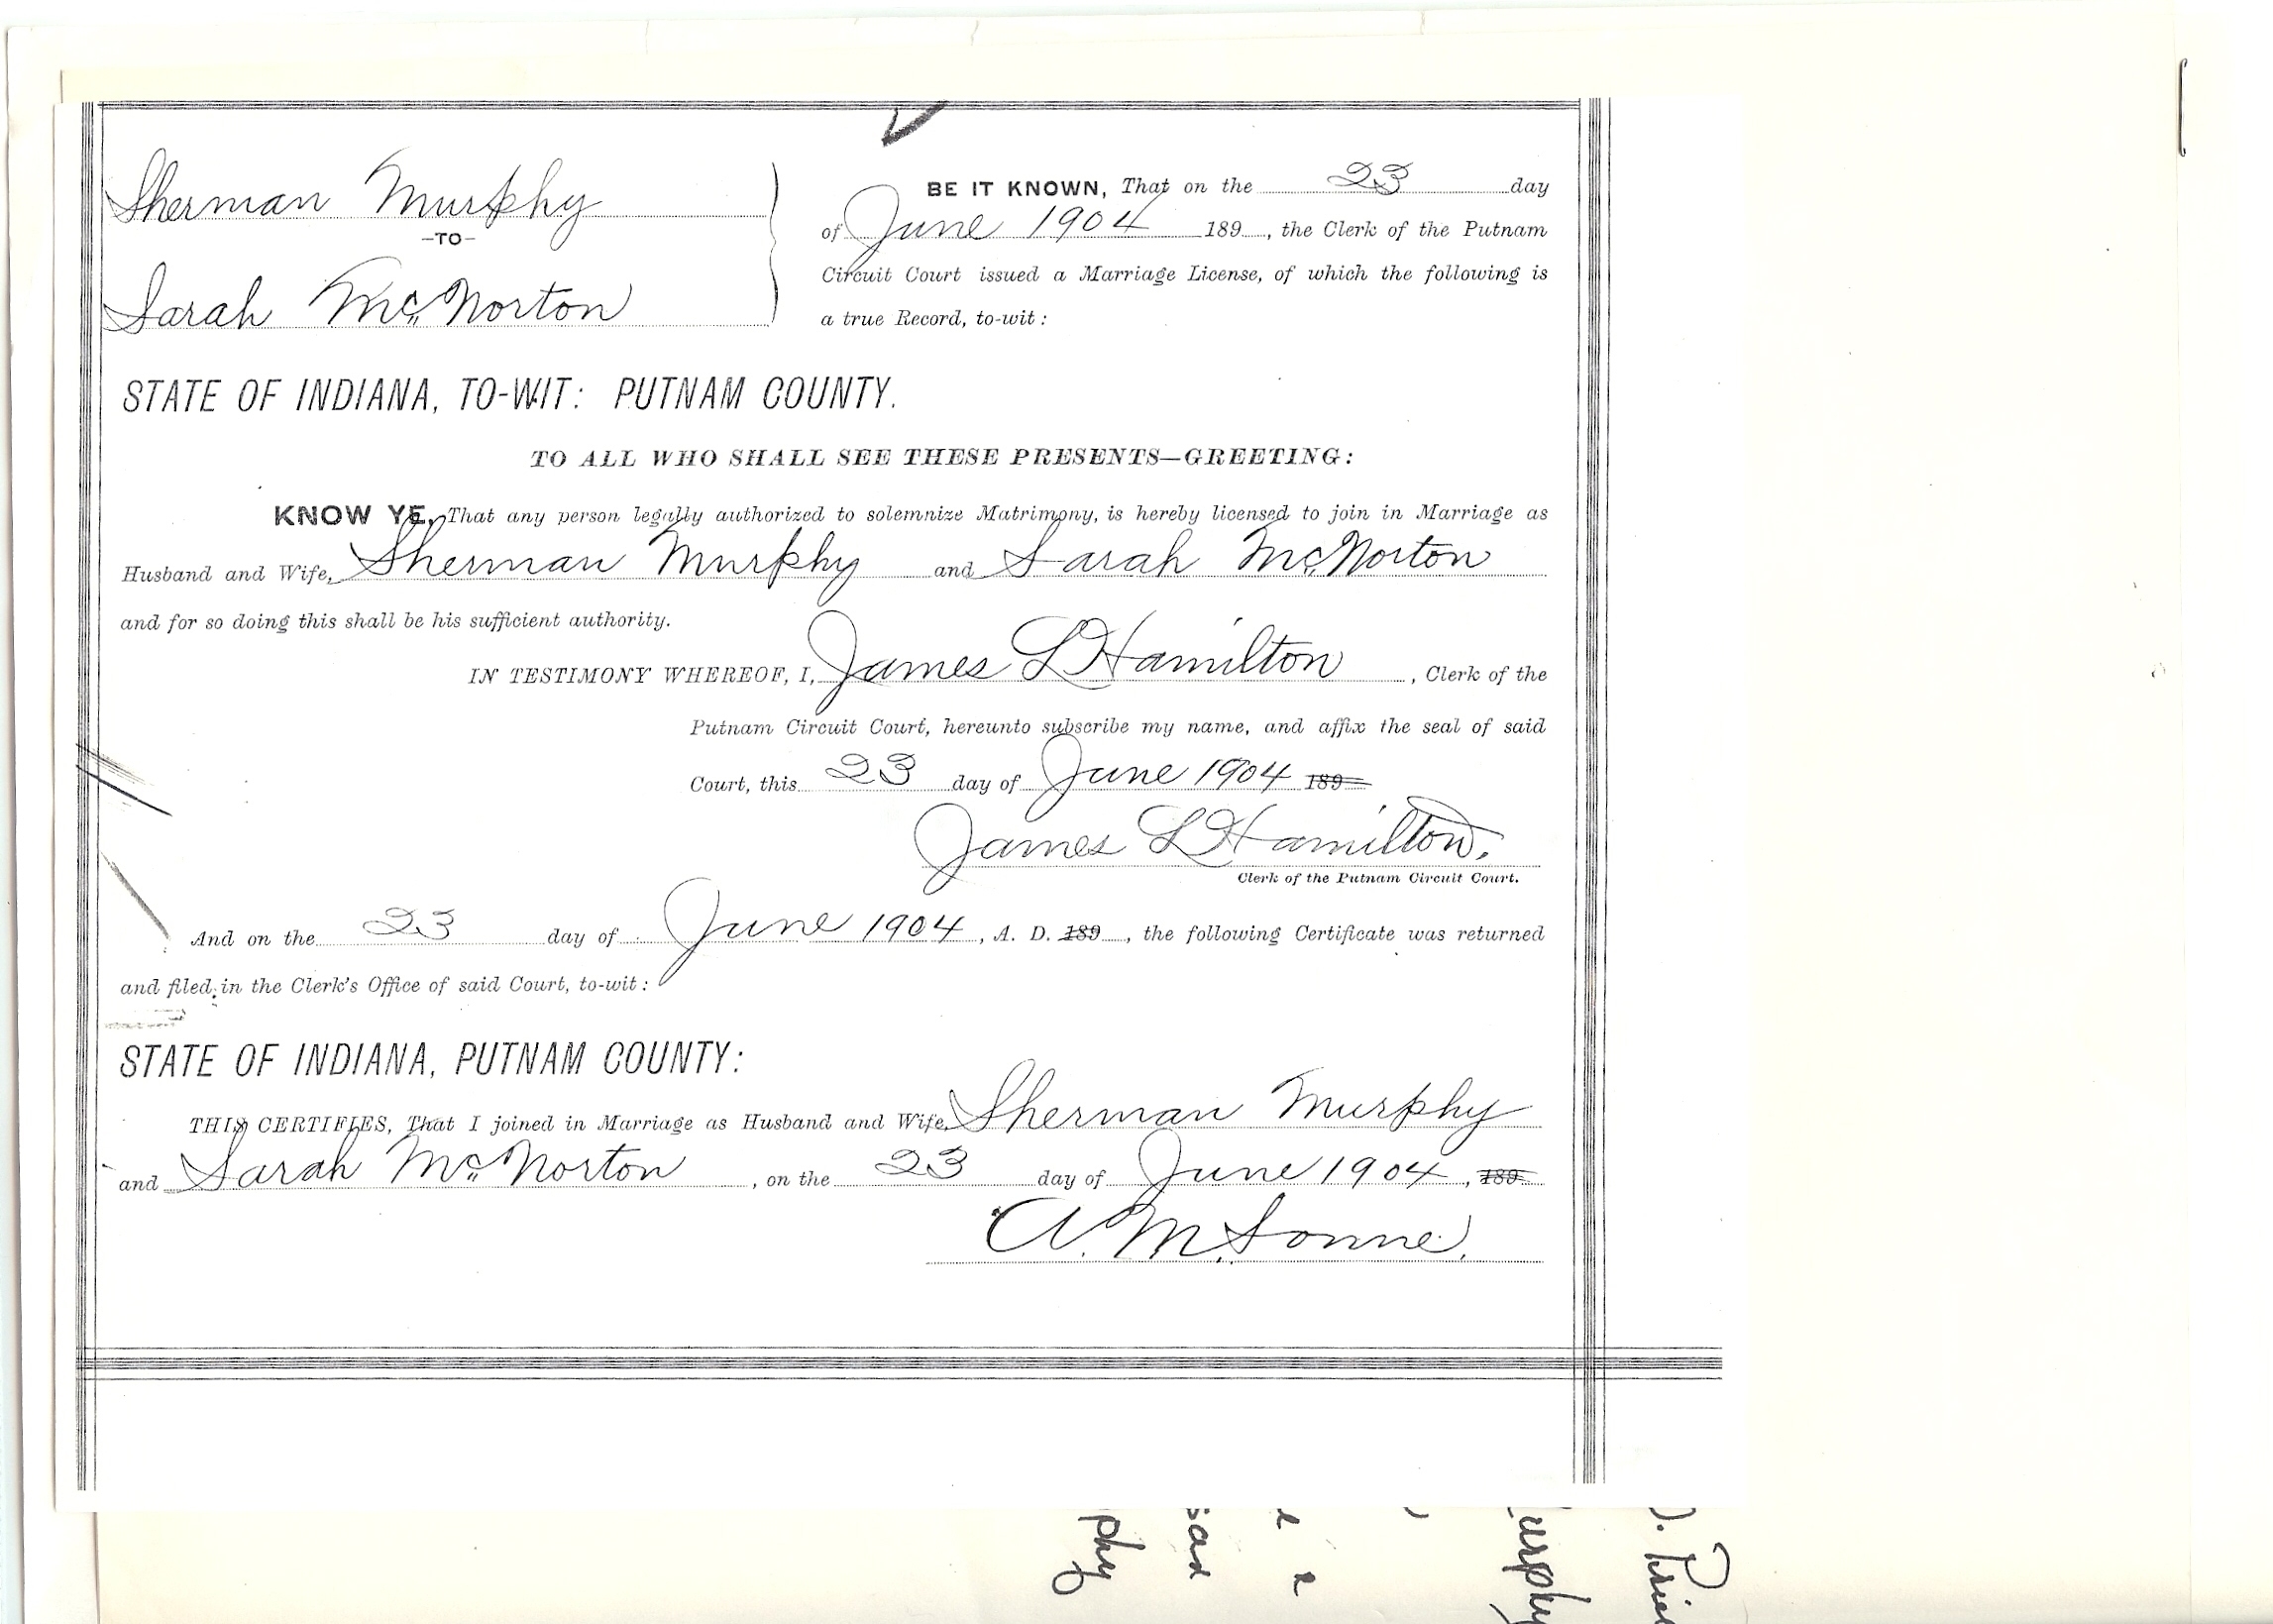 Sherman Murphy
—TO—
Sarah McNorton
BE IT KNOWN, That on the 23 day
of June 1904 189 , the Clerk of the Putnam
Circuit Court issued a Marriage License, of which the following is
a true Record, to-wit:
STATE OF INDIANA, TO-WIT: PUTNAM COUNTY.
TO ALL WHO SHALL SEE THESE PRESENTS—GREETING:
KNOW YE, That any person legally authorized to solemnize Matrimony, is hereby licensed to join in Marriage as
Husband and Wife, Sherman Murphy and Sarah McNorton
and for so doing this shall be his sufficient authority.
IN TESTIMONY WHEREOF, I, James L Hamilton , Clerk of the
Putnam Circuit Court, hereunto subscribe my name, and affix the seal of said
Court, this 23 day of June 1904 189
James L Hamilton.
Clerk of the Putnam Circuit Court.
And on the 23 day of June 1904 , A. D. 189 , the following Certificate was returned
and filed in the Clerk's Office of said Court, to-wit:
STATE OF INDIANA, PUTNAM COUNTY:
THIS CERTIFIES, That I joined in Marriage as Husband and Wife, Sherman Murphy
and Sarah McNorton , on the 23 day of June 1904 , 189
A. M. Sonne.